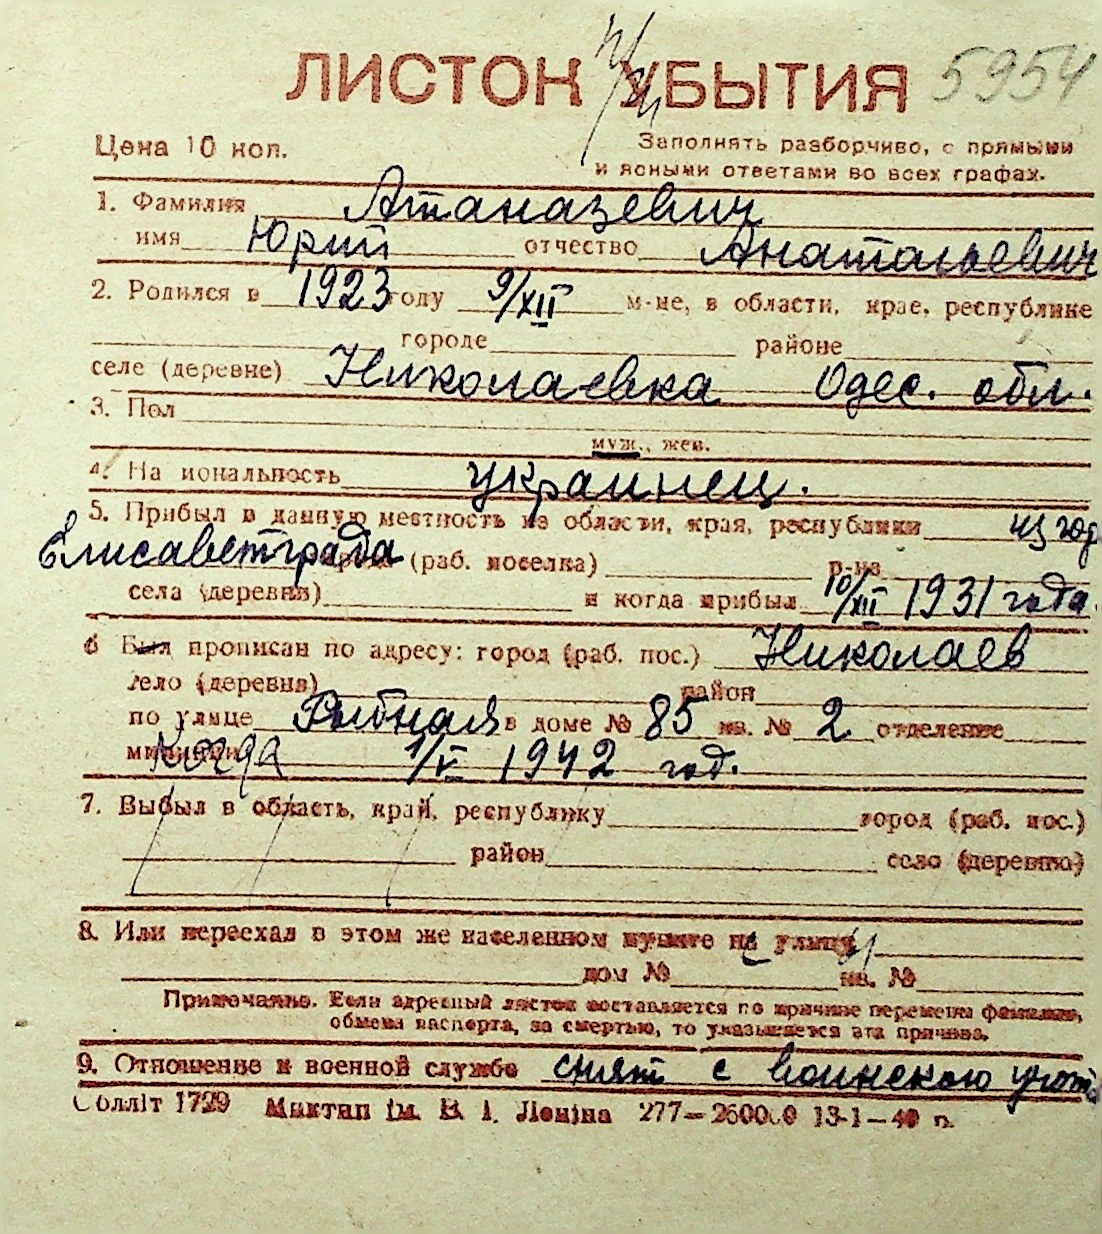 ЛИСТОК УБЫТИЯ 5954
Цена 10 коп.
Заполнять разборчиво, с прямыми
и ясными ответами во всех графах.
1. Фамилия Атаназевич
имя Юрий отчество Анатольевич
2. Родился в 1923 году 9/XII м-це, в области, крае, республике
городе районе
селе (деревне) Николаевка Одес. обл.
3. Пол
муж., жен.
4. На иональность украинец.
5. Прибыл в данную местность из области, края, республики из гор
Елисаветграда (раб. поселка) р-на
села (деревни) и когда прибыл 10/XII 1931 года.
6 Был прописан по адресу: город (раб. пос.) Николаев
село (деревня) район
по улице Рыбная в доме № 85 кв. № 2 отделение
милиции когда 1/V 1942 год.
7. Выбыл в область, край, республику город (раб. пос.)
район село (деревню)
8. Или переехал в этом же населенном пункте на улицу
дом № кв. №
Примечание. Если адресный листок составляется по причине перемены фамилии,
обмена паспорта, за смертью, то указывается эта причина.
9. Отношение к военной службе снят с воинского учота
Облліт 1729 Миктип ім. В. І. Леніна 277—260000 13-1—40 р.